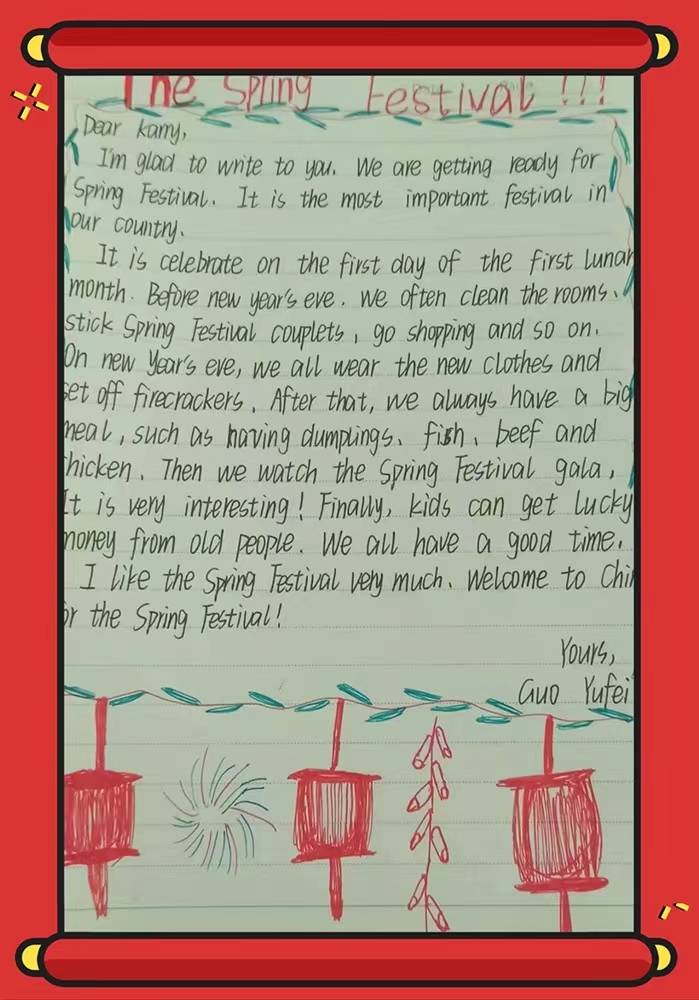 The Spring Festival !!!
Dear Karry,
I'm glad to write to you. We are getting ready for
Spring Festival. It is the most important festival in
our country.
It is celebrate on the first day of the first lunar
month. Before new year's eve. We often clean the rooms.
stick Spring Festival couplets, go shopping and so on.
On new Year's eve, we all wear the new clothes and
set off firecrackers. After that, we always have a big
meal, such as having dumplings, fish, beef and
hicken. Then we watch the Spring Festival gala,
It is very interesting! Finally, kids can get lucky
money from old people. We all have a good time.
I like the Spring Festival very much. Welcome to Chin
or the Spring Festival!
Yours,
Guo Yufei